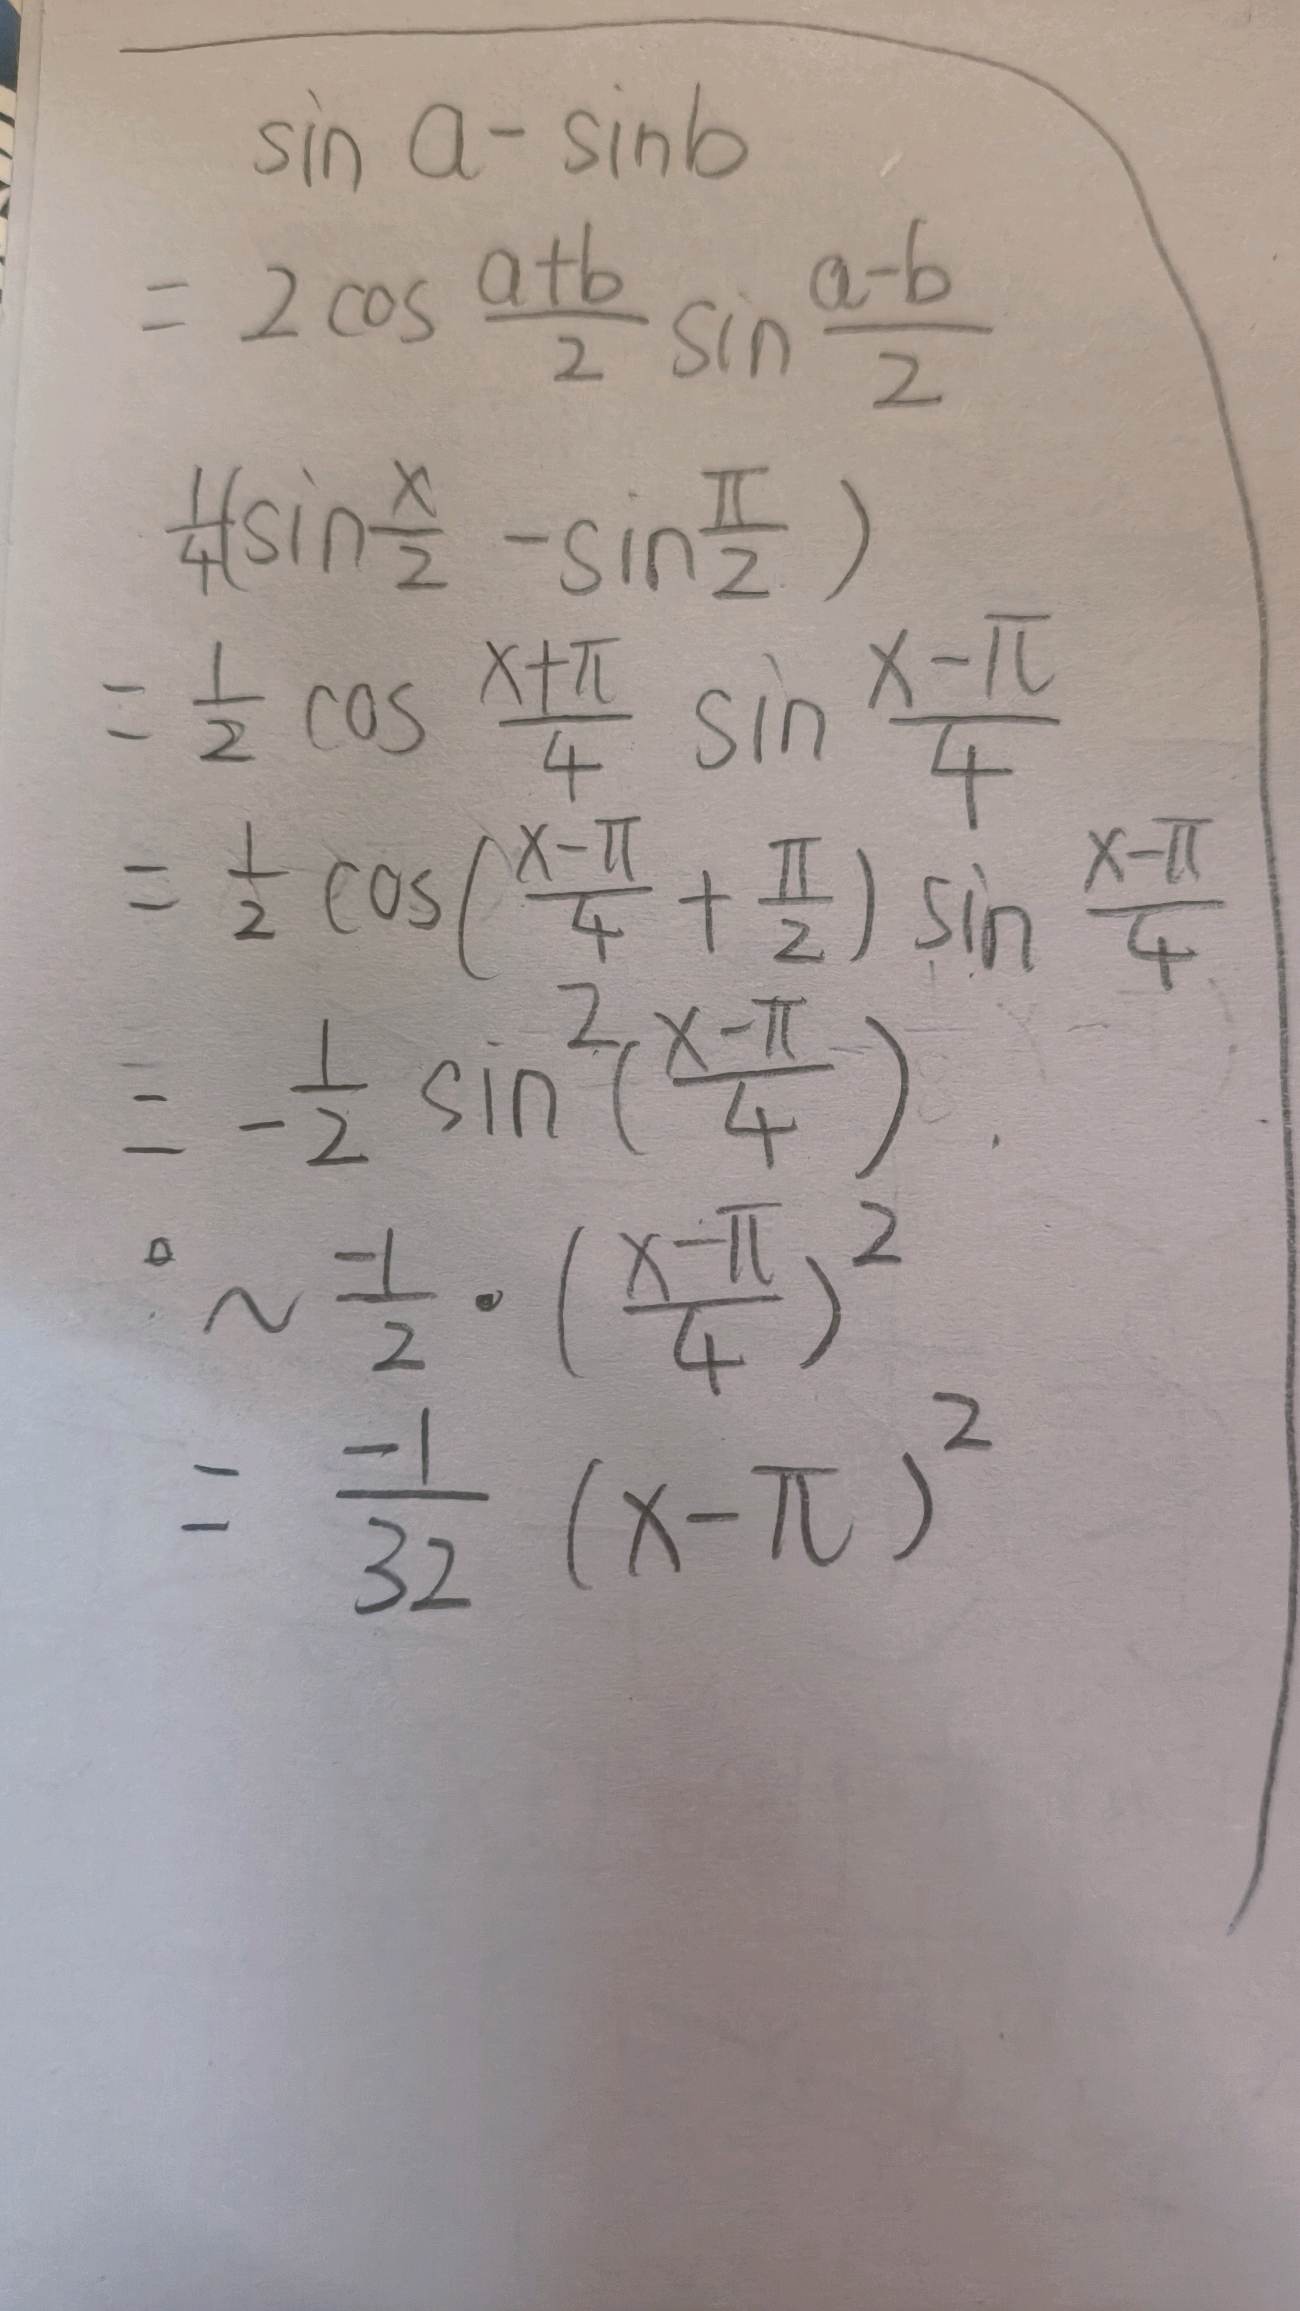 sin a - sin b
= 2 cos \frac{a+b}{2} sin \frac{a-b}{2}
\frac{1}{4}(sin \frac{x}{2} - sin \frac{π}{2})
= \frac{1}{2} cos \frac{x+π}{4} sin \frac{x-π}{4}
= \frac{1}{2} cos(\frac{x-π}{4} + \frac{π}{2}) sin \frac{x-π}{4}
= -\frac{1}{2} sin^2(\frac{x-π}{4})
~ \frac{-1}{2} · (\frac{x-π}{4})^2
= \frac{-1}{32} (x-π)^2